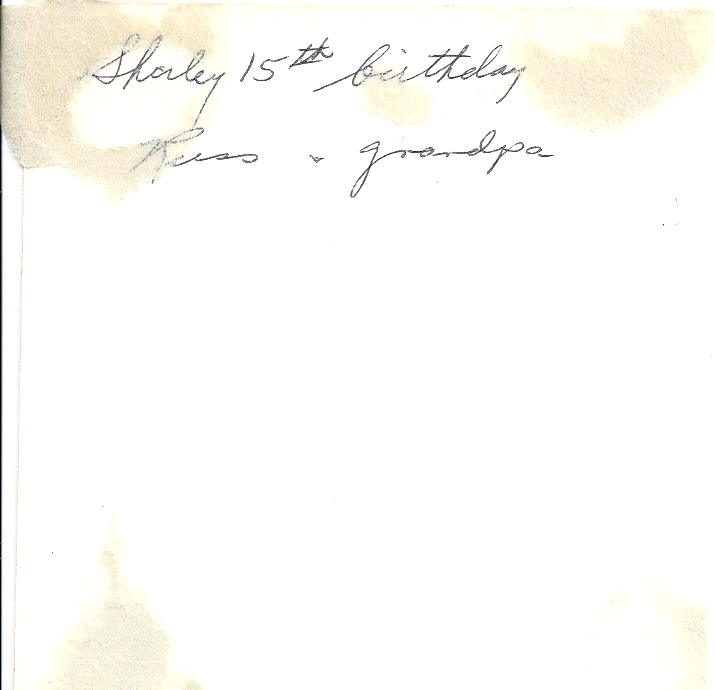 Shorley 15th birthday
Russ & grandpa